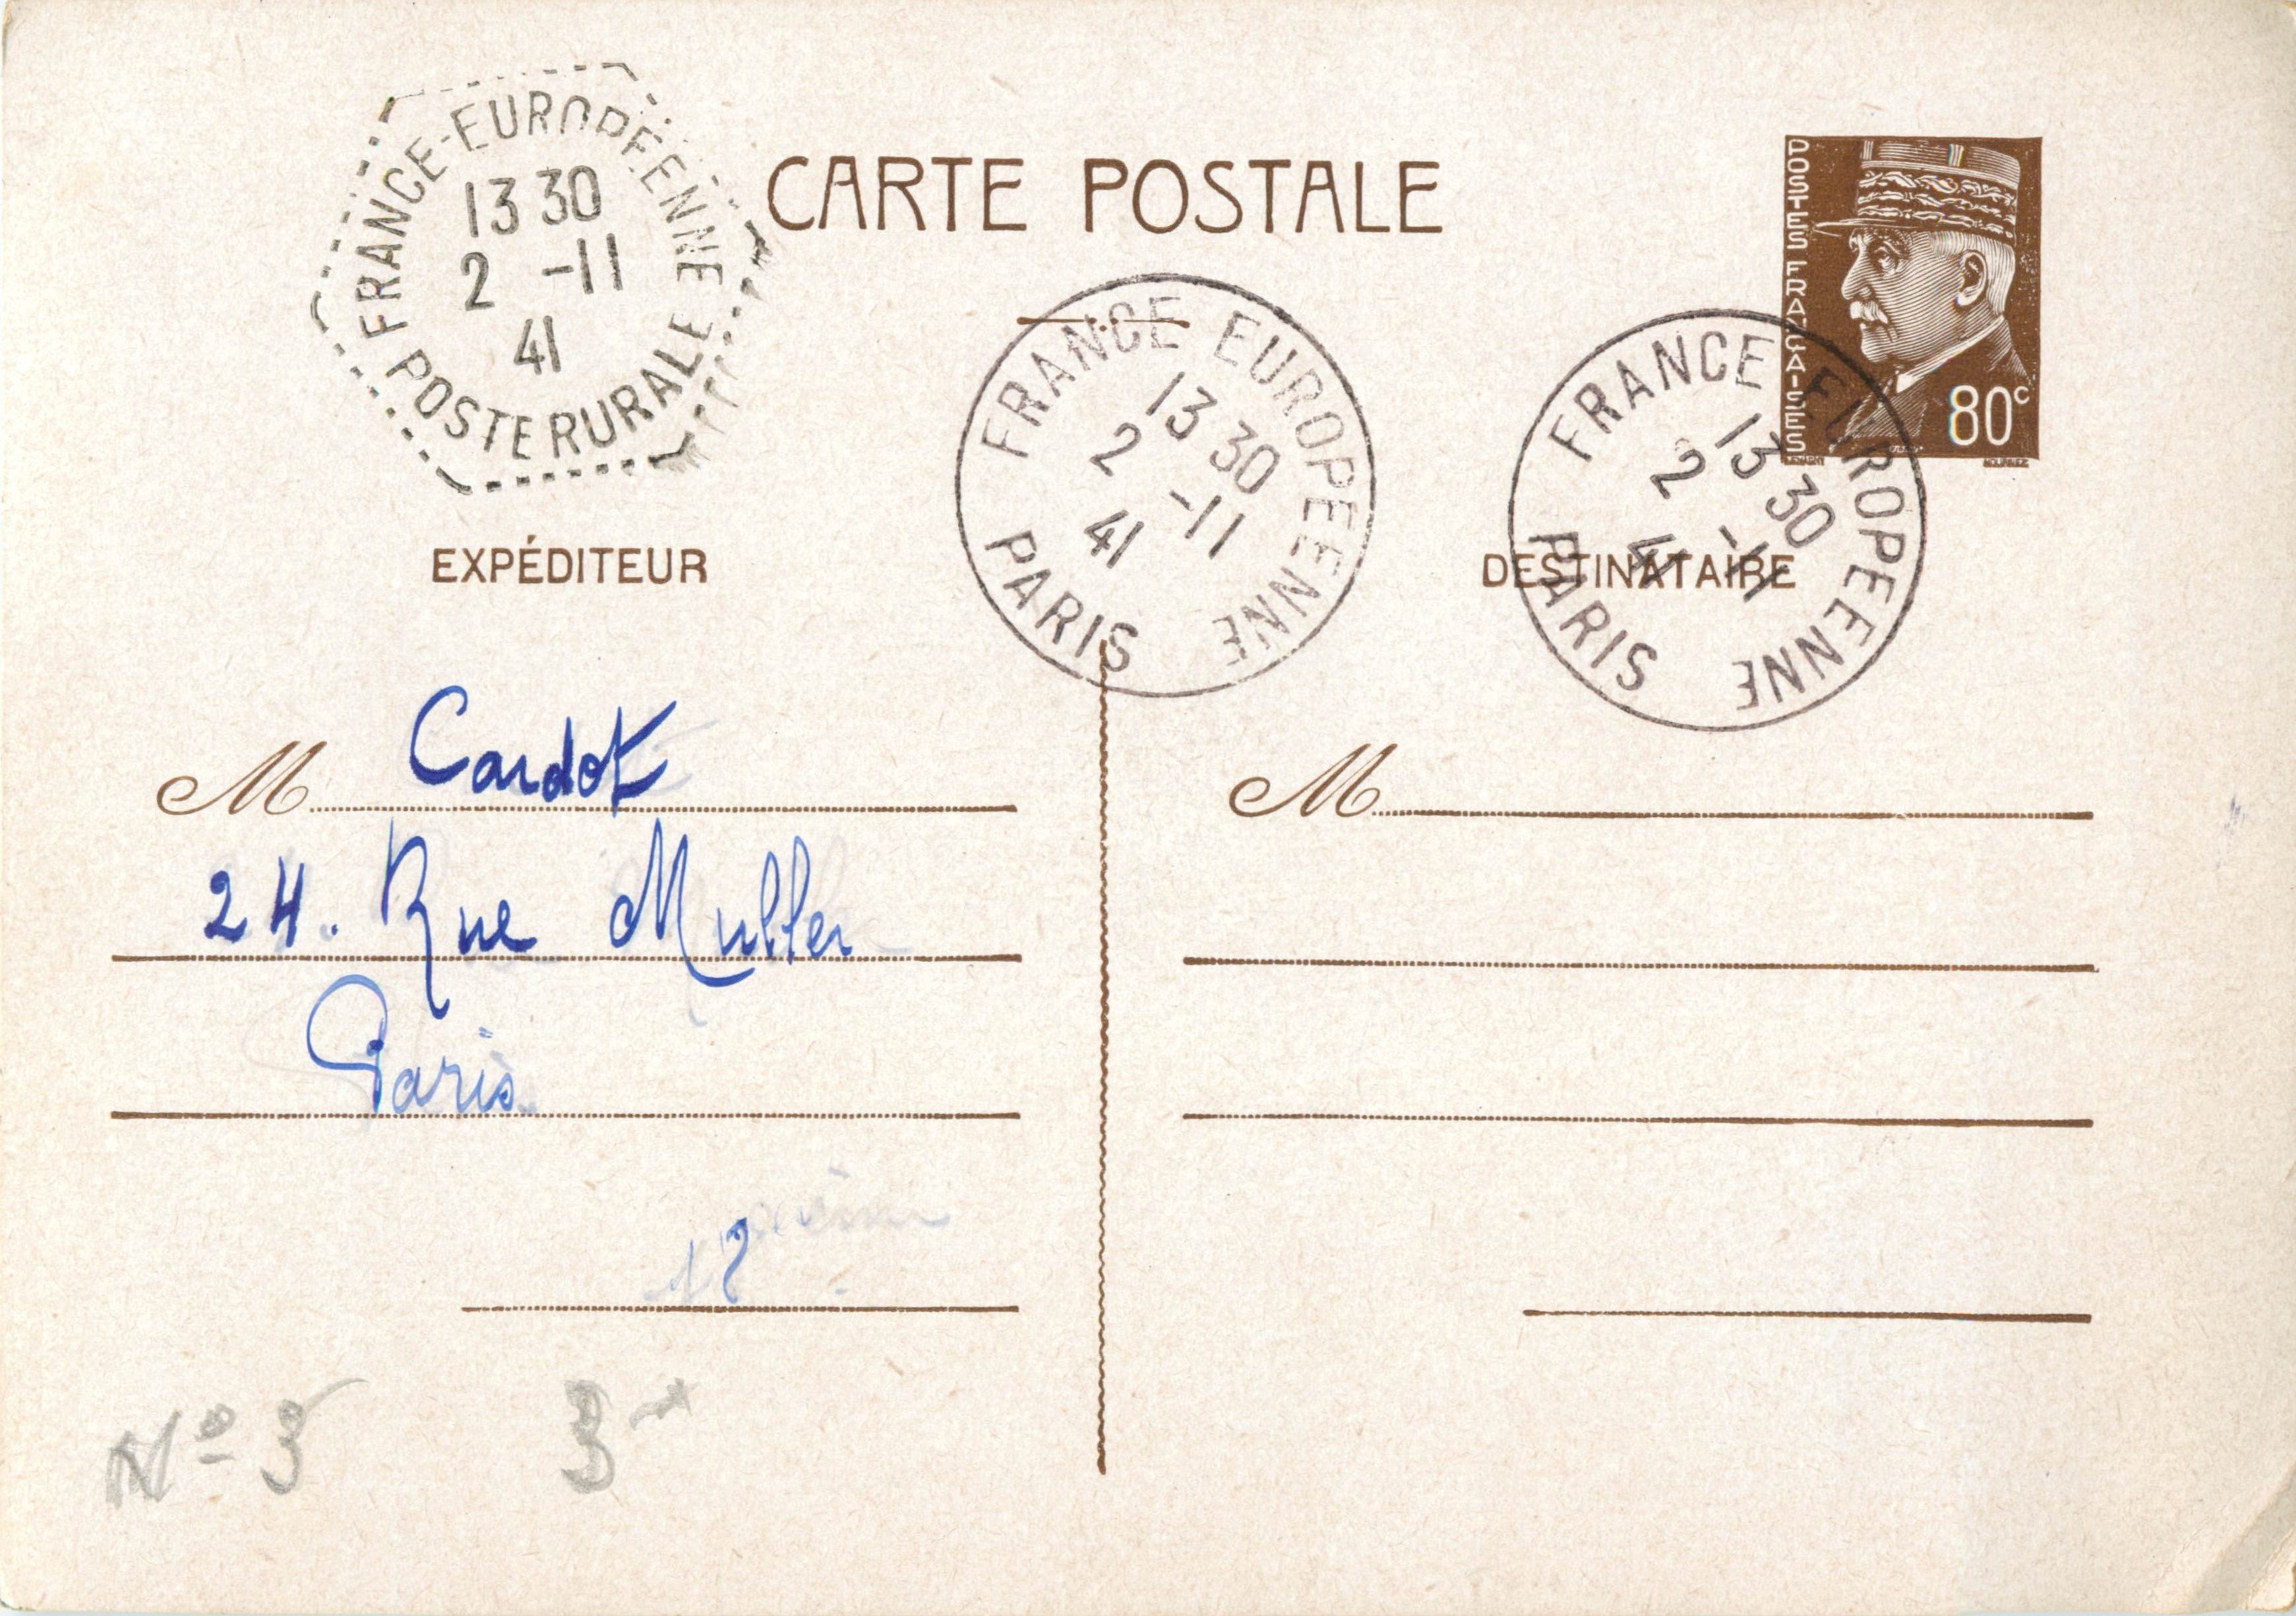 FRANCE-EUROPÉENNE
13 30
2 -11
41
POSTE RURALE
CARTE POSTALE
POSTES FRANÇAISES
80c
FRANCE EUROPÉENNE
13 30
2 -11
41
PARIS
FRANCE EUROPÉENNE
13 30
2 -11
41
PARIS
EXPÉDITEUR
DESTINATAIRE
M Cardot
M
24. Rue Muller
Paris
Nº 3
3